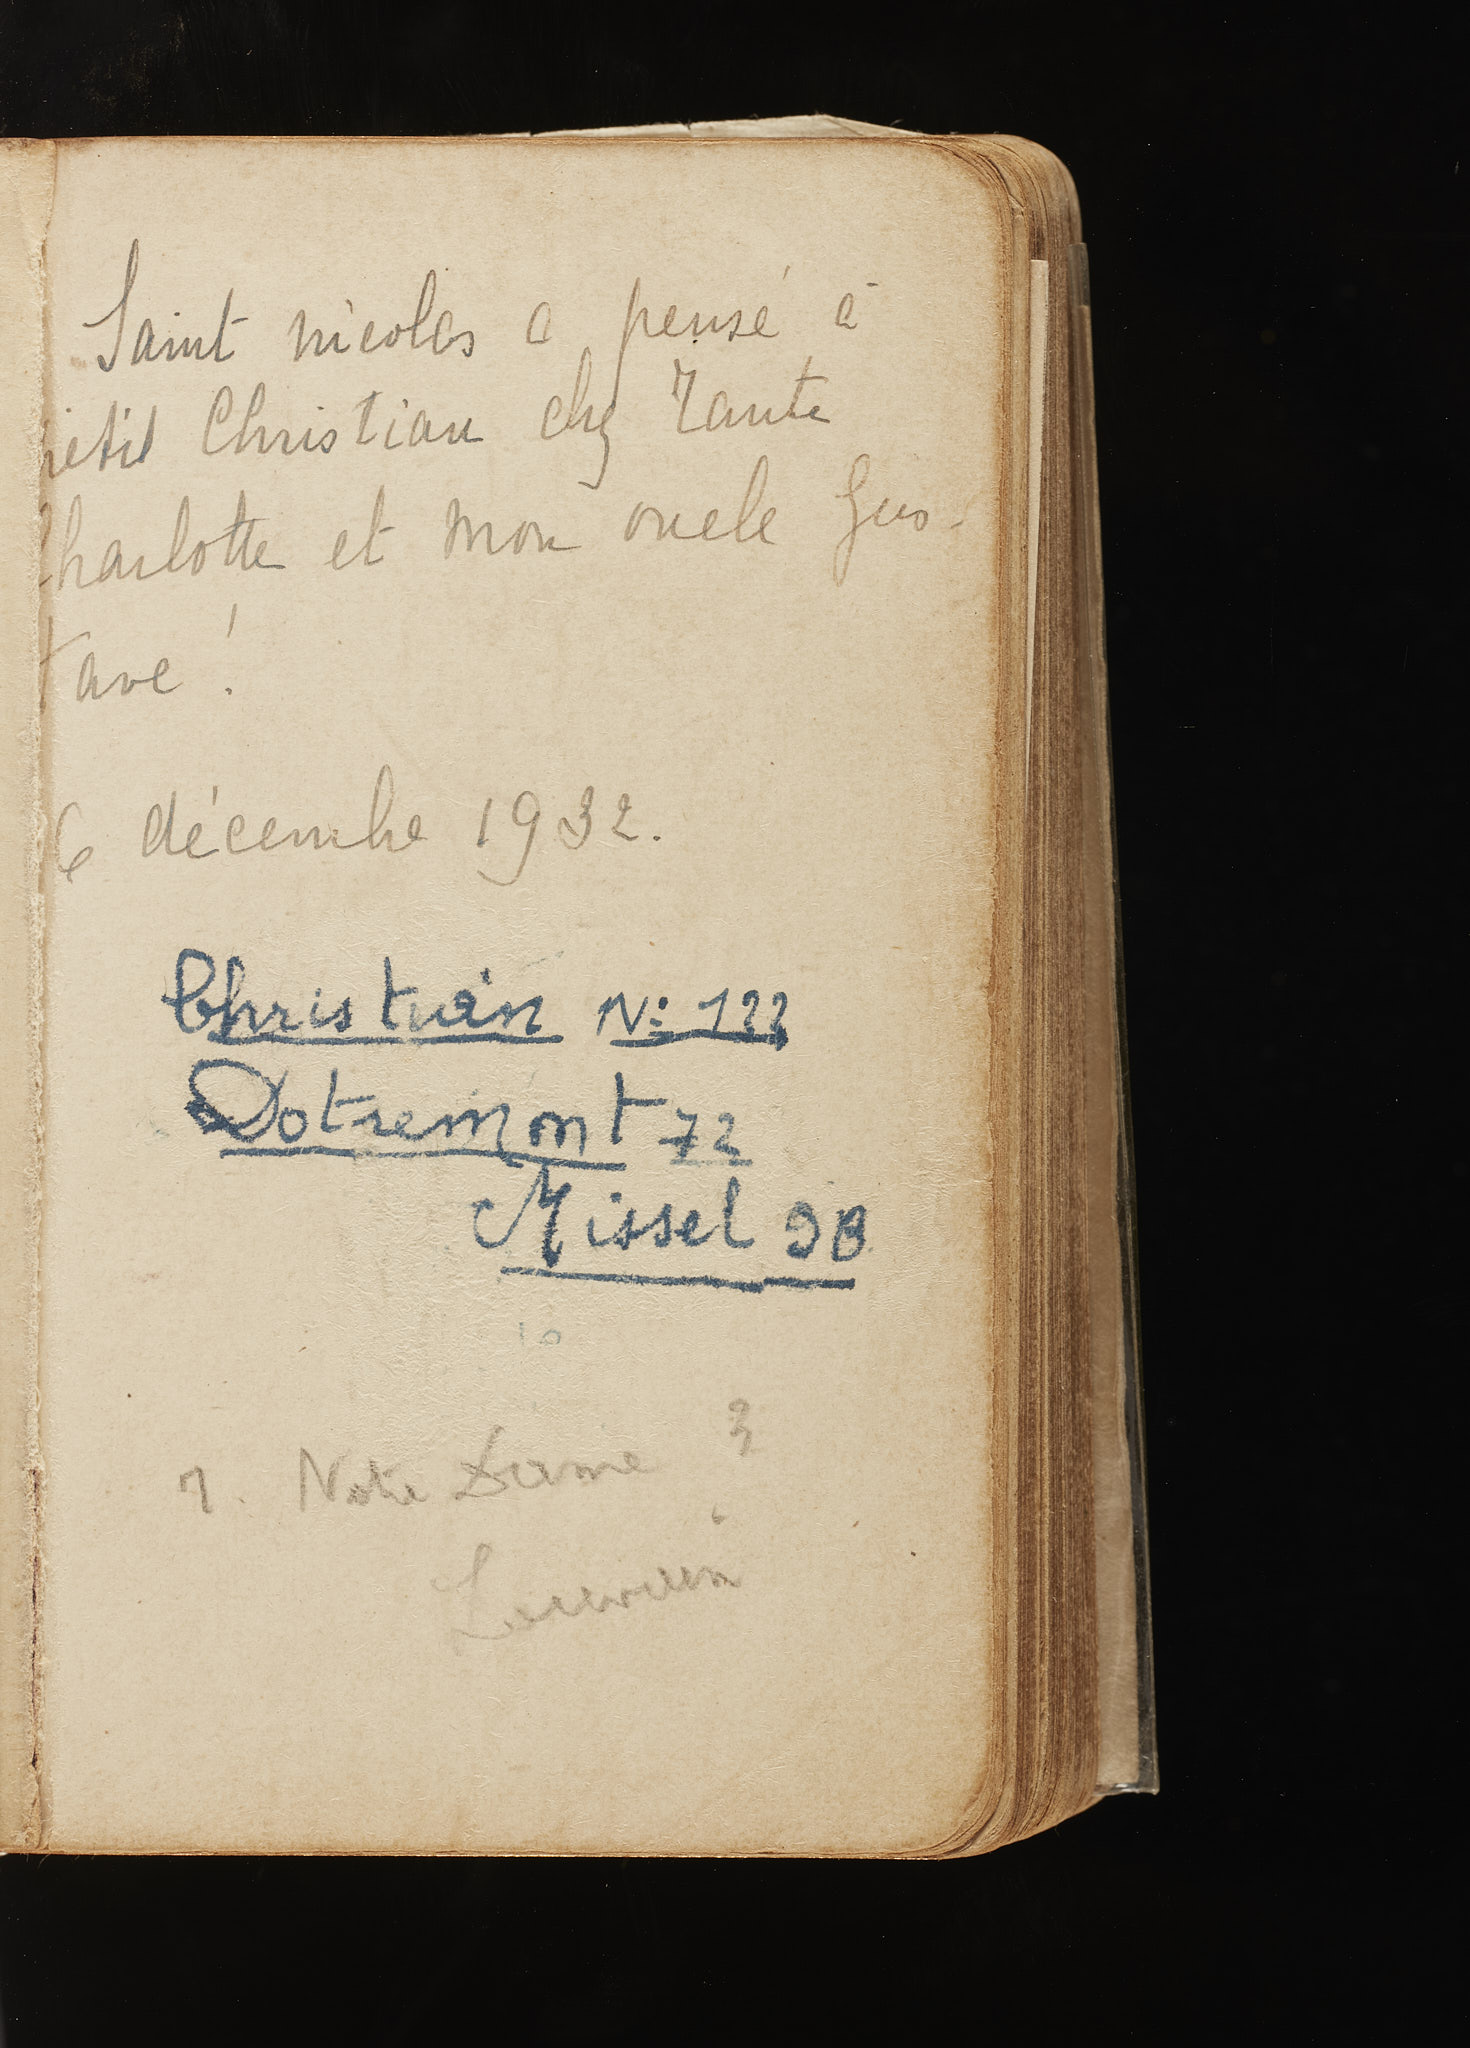 Saint Nicolas a pensé à
petit Christian chez Tante
Charlotte et mon oncle Gus-
tave !
6 décembre 1932.
Christian N° 122
Dotremont 72
Missel 98
10
7. Notre Dame 3
Louvain